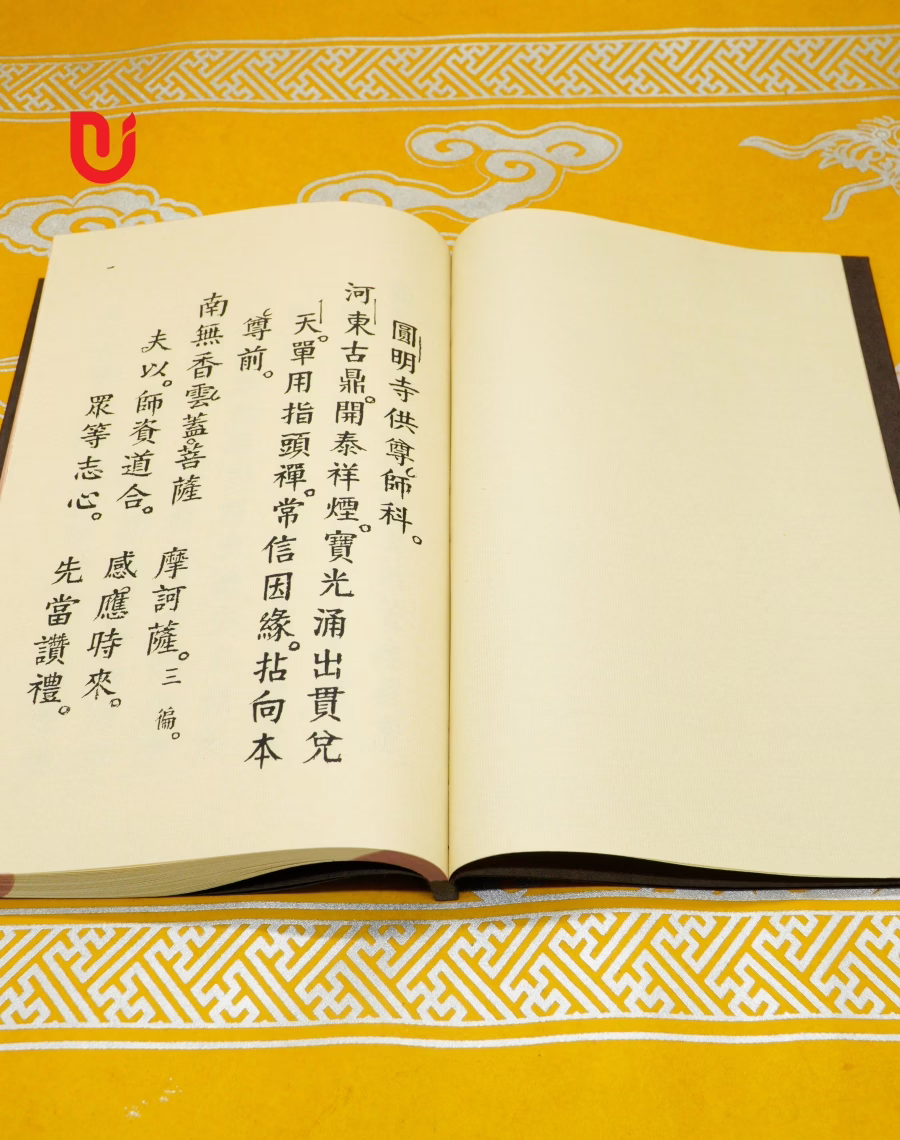 圓明寺供尊師科。
河東古鼎。開泰祥煙。寶光涌出貫兌
天。單用指頭禪。常信因緣。拈向本
尊前。
南無香雲蓋。菩薩 摩訶薩。三徧。
夫以。師資道合。感應時來。
眾等志心。先當讚禮。